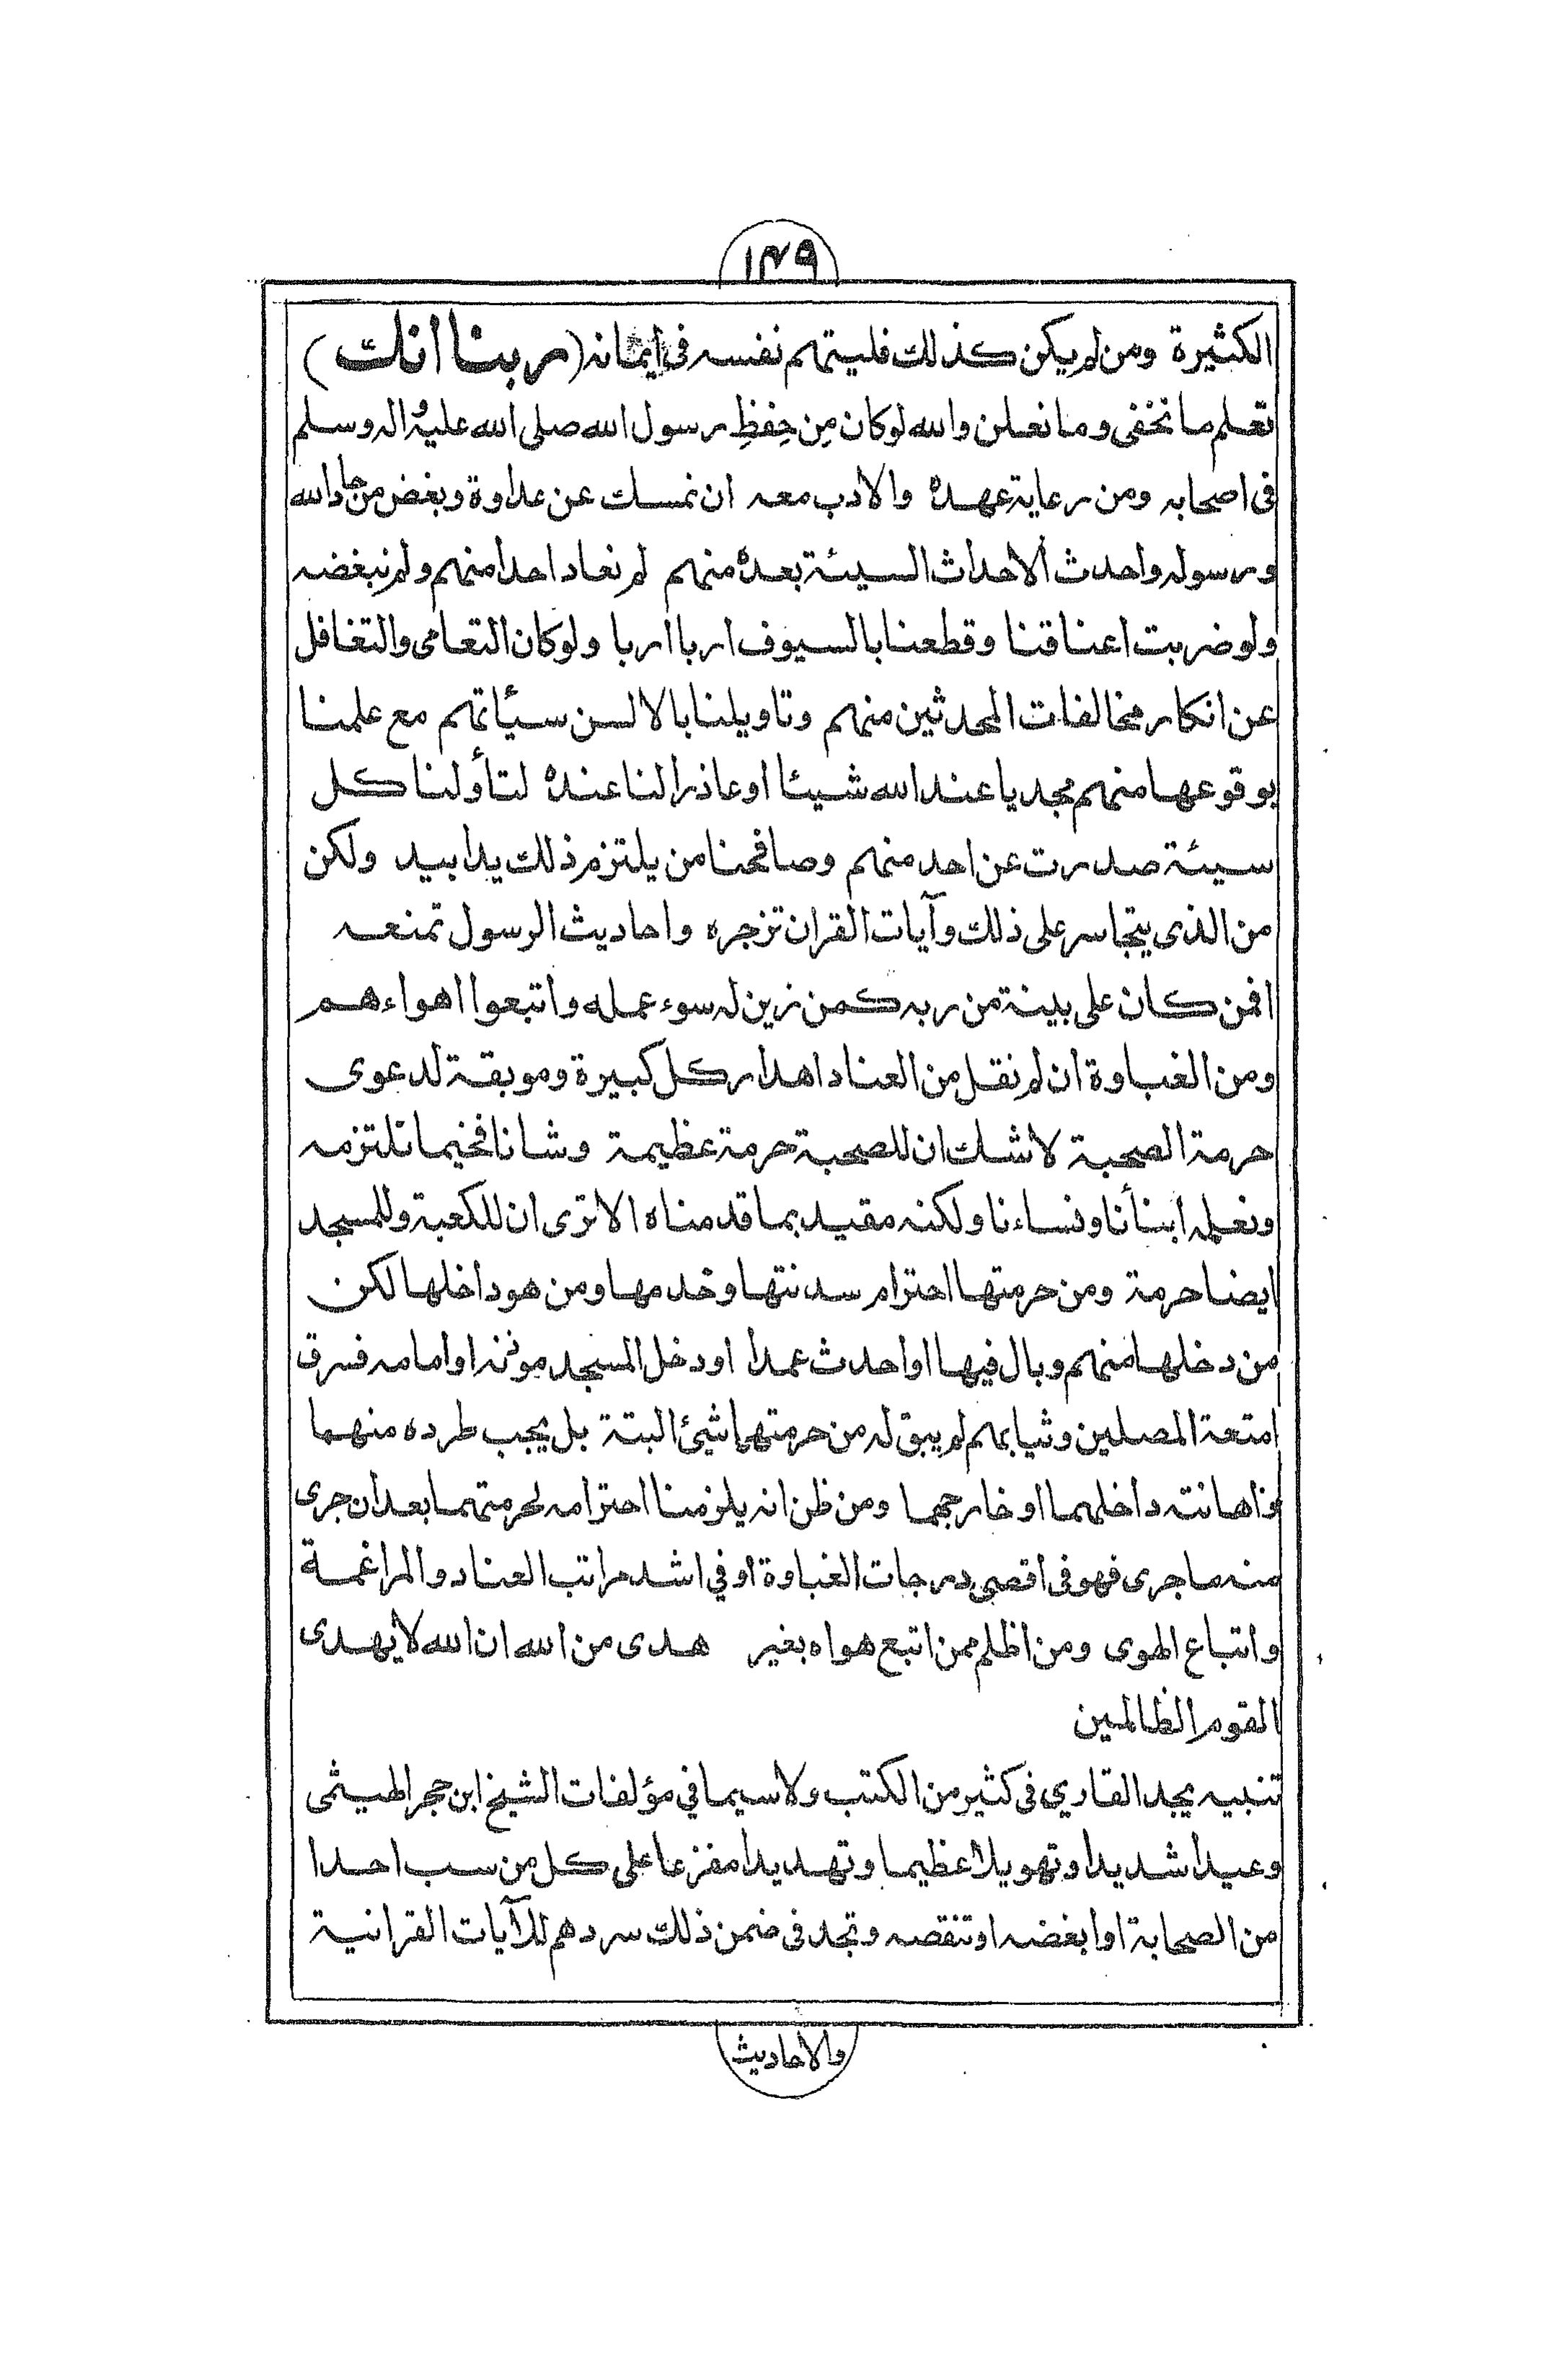 ١٤٩
الكثيرة ومن لم يكن كذلك فليتهم نفسه فى ايمانه (ربنا انك)
تعلم ما نخفى وما نعلن والله لو كان مِن حِفظِ رسول الله صلى الله عليه واله وسلم
فى اصحابه ومن رعاية عهده والادب معه ان نمسك عن عداوة وبغض من حاد الله
ورسوله واحدث الاحداث السيئة بعده منهم لم نعاد احدا منهم ولم نبغضه
ولو ضربت اعناقنا وقطعنا بالسيوف اربا اربا ولو كان التعامى والتغافل
عن انكار مخالفات المحدثين منهم وتاويلنا بالالسن سيئاتهم مع علمنا
بوقوعها منهم مجديا عند الله شيئا او عاذرا لنا عنده لتأولنا كل
سيئة صدرت عن احد منهم وصافحنا من يلتزم ذلك يدا بيد ولكن
من الذى يتجاسر على ذلك وآيات القران تزجره واحاديث الرسول تمنعه
افمن كان على بينة من ربه كمن زين له سوء عمله واتبعوا اهواءهم
ومن الغباوة ان لم نقل من العناد اهدار كل كبيرة وموبقة لدعوى
حرمة الصحبة لا شك ان للصحبة حرمة عظيمة وشانا فخيما نلتزمه
ونعلمه ابنأنا ونساءنا ولكنه مقيد بما قدمناه الا ترى ان للكعبة وللمسجد
ايضا حرمة ومن حرمتها احترام سدنتها وخدمها ومن هو داخلها لكن
من دخلها منهم وبال فيها او احدث عمدا او دخل المسجد موذنه او امامه فسرق
امتعة المصلين وثيابهم لم يبق له من حرمتهما شيئ البتة بل يجب طرده منهما
واهانته داخلهما او خارجهما ومن ظن انه يلزمنا احترامه لحرمتهما بعد ان جرى
منه ما جرى فهو فى اقصى درجات الغباوة او في اشد مراتب العناد والمراغمة
واتباع الهوى ومن اظلم ممن اتبع هواه بغير هدى من الله ان الله لا يهدى
القوم الظالمين
تنبيه يجد القاري فى كثير من الكتب ولا سيما في مؤلفات الشيخ ابن حجر الهيثمى
وعيدا شديدا وتهويلا عظيما وتهديدا مفزعا على كل من سب احدا
من الصحابة او ابغضه او تنقصه وتجد فى ضمن ذلك سردهم للآيات القرانية
والاحاديث